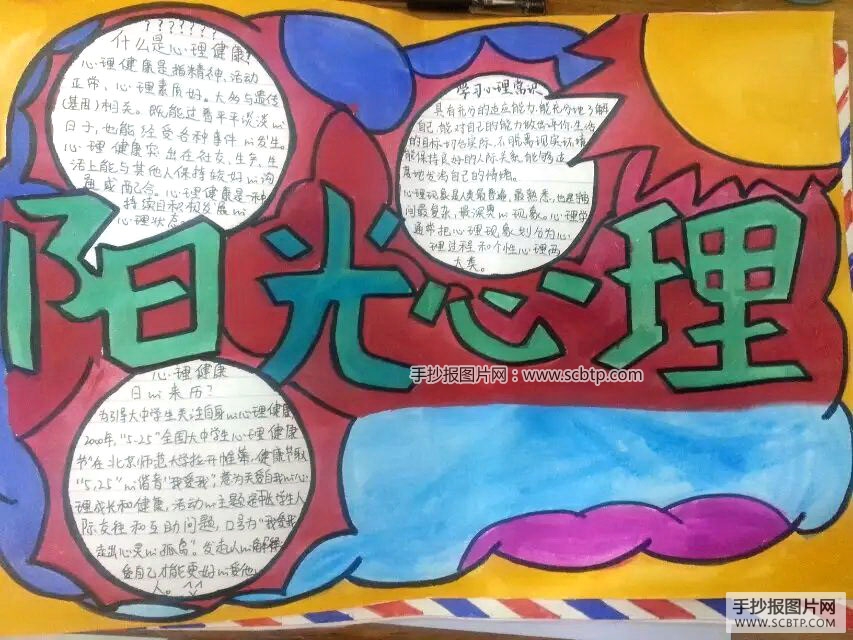 ???????
什么是心理健康?
心理健康是指精神、活动
正常、心理素质好。大多与遗传
(基因)相关。既能过着平平淡淡的
日子,也能经受各种事件的发生。
心理健康突出在社交、生产、生
活上能与其他人保持较好的沟
通或配合。心理健康是一种
持续且积极发展的
心理状态
学习心理常识
具有充分的适应能力,能充分地了解
自己,能对自己的能力做出评价,生活
的目标切合实际,不脱离现实环境
能保持良好的人际关系,能够适
度地发泄自己的情绪。
心理现象是人类最普遍、最熟悉,也是
同最复杂、最深奥的现象。心理学
通常把心理现象划分为心
理过程和个性心理两
大类。
阳光心理
手抄报图片网:www.scbtp.com
心理健康
日的来历?
为引导大中学生关注自身的心理健康
2000年,"5.25"全国大中学生心理健康
节"在北京师范大学拉开帷幕,健康节取
"5,25"的谐音"我爱我",意为关爱自我的心
理成长和健康,活动的主题是学生人
际交往和互助问题,口号为"我爱我
走出心灵的孤岛"。发起人的解释
爱自己才能更好的爱他
人。^_^
手抄报图片网
WWW.SCBTP.COM